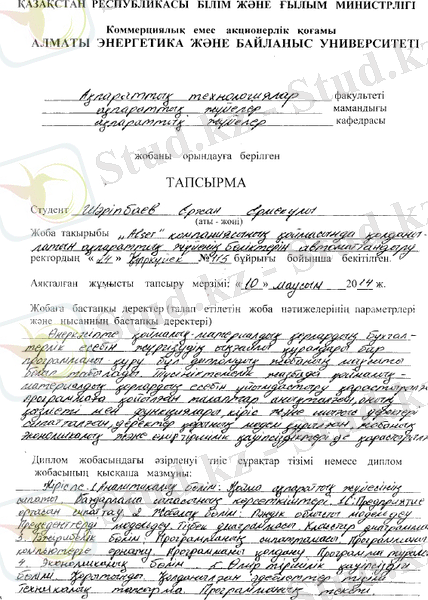 ҚАЗАҚСТАН РЕСПУБЛИКАСЫ БІЛІМ ЖӘНЕ ҒЫЛЫМ МИНИСТРЛІГІ
Коммерциялық емес акционерлік қоғамы
АЛМАТЫ ЭНЕРГЕТИКА ЖӘНЕ БАЙЛАНЫС УНИВЕРСИТЕТІ
Ақпараттық технологиялар факультеті
ақпараттық жүйелер мамандығы
ақпараттық жүйелер кафедрасы
жобаны орындауға берілген
ТАПСЫРМА
Студент Шәріпбаев Ержан
(аты - жөні)
Жоба тақырыбы компаниясының қоймасында қолданы-
латын ақпараттық жүйенің бөліктерін автоматтандыру
ректордың «24» қыркүйек №115 бұйрығы бойынша бекітілген.
Аяқталған жұмысты тапсыру мерзімі: «10» маусым 2014 ж.
Жобаға бастапқы деректер (талап етілетін жоба нәтижелерінің параметрлері
және нысанның бастапқы деректері)
қоймалық-материалдық қорлардың бухгал-
терлік есебін жүргізудің бар
программаны құру бұл дипломдық жобаның мақсаты
болып табылады. жұмыста қоймалық-
материалдық қорлардың есебін ұйымдастыру қарастырылған,
программаға қойылған талаптар анықталған, оның
қызметі мен функциялары, кіріс және шығыс деректері
сипатталған, деректер қорының моделі құрылған, жобаның
экономикалық және өміртіршілік қауіпсіздіктері де қарастырылған
Диплом жобасындағы әзірленуі тиіс сұрақтар тізімі немесе диплом
жобасының қысқаша мазмұны:
Кіріспе. 1 Аналитикалық бөлім. Қойма ақпараттық жүйесінің
сипаты. көрсеткіштері. 1С: Предприятие
ортасын сипаттау. 2 Жобалық бөлім. облысты модельдеу
Прецеденттерді модельдеу. диаграммасы. Кластар диаграммасы
3. бөлім. Программаның сипаттамасы. Программаны
компьютерге орнату. Программаны қолдану. Программа
4. Экономикалық бөлім 5. Өмір тіршілік қауіпсіздігі
бөлімі. Қорытынды. Қолданылған әдебиеттер тізімі
Техникалық тапсырма. Программаның тексті